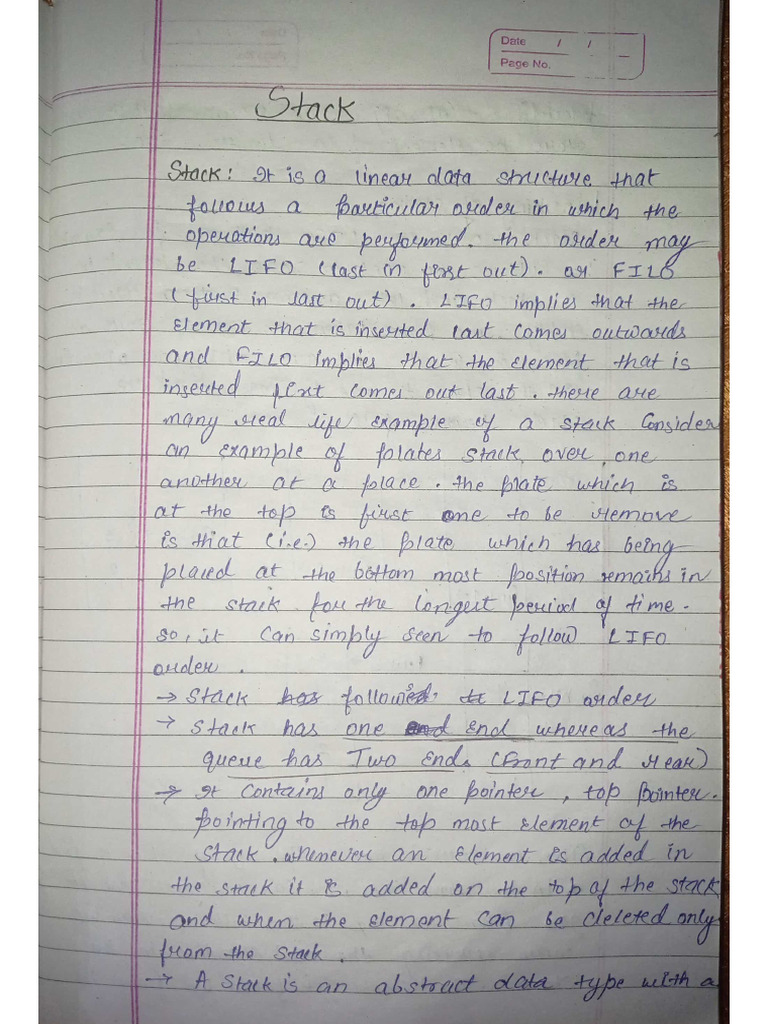 Date / /
Page No.
Stack
Stack: It is a linear data structure that
follows a particular order in which the
operations are performed. the order may
be LIFO (last in first out). or FILO
(first in last out). LIFO implies that the
element that is inserted last comes outwards
and FILO implies that the element that is
inserted first comes out last. there are
many real life example of a stack Consider
an example of plates stack over one
another at a place. the plate which is
at the top is first one to be remove
is that (i.e.) the plate which has being
placed at the bottom most position remains in
the stack for the longest period of time.
so, it can simply seen to follow LIFO
order.
→ Stack follows LIFO order
→ Stack has one end whereas the
queue has Two Ends (Front and rear)
→ It contains only one pointer, top pointer.
pointing to the top most element of the
stack. whenever an element is added in
the stack it is added on the top of the stack
and when the element can be deleted only
from the stack.
→ A Stack is an abstract data type with a